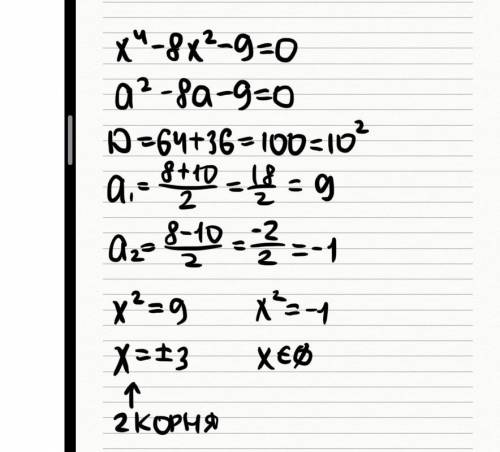 x⁴-8x²-9=0
a²-8a-9=0
D=64+36=100=10²
a₁=8+10/2=18/2=9
a₂=8-10/2=-2/2=-1
x²=9 x²=-1
x=±3 x∈∅
↑
2 КОРНЯ